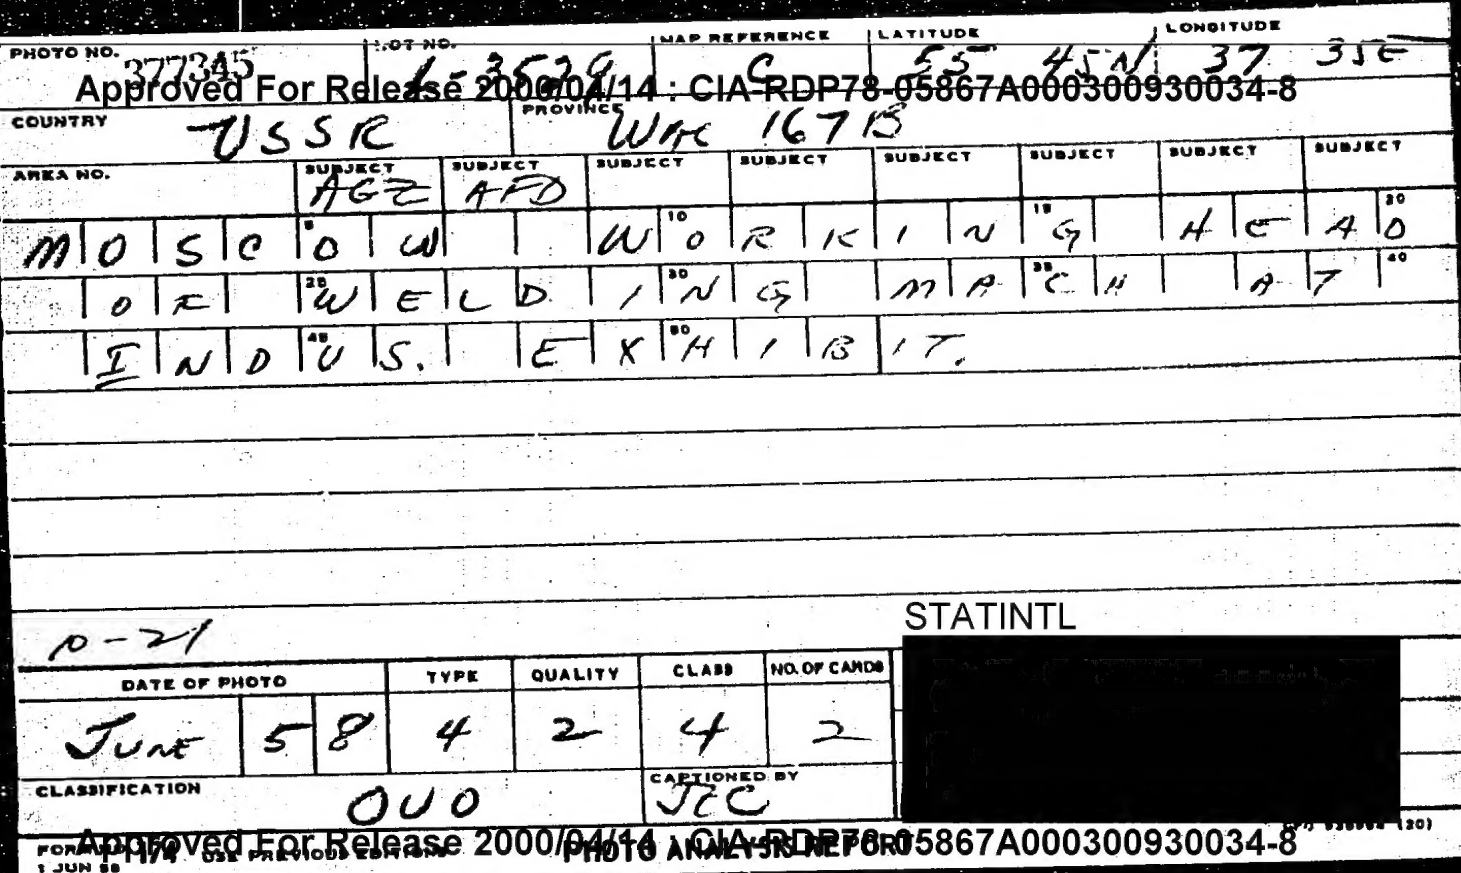 PHOTO NO. 377345 LOT NO. MAP REFERENCE C LATITUDE 55 45N LONGITUDE 37 35E
Approved For Release 2000/04/14 : CIA-RDP78-05867A000300930034-8
COUNTRY USSR PROVINCE WAC 167B
AREA NO. SUBJECT AGZ SUBJECT AFD SUBJECT SUBJECT SUBJECT SUBJECT SUBJECT SUBJECT
MOSCOW WORKING HEAD
OF WELDING MACH AT
INDUS. EXHIBIT.
P-21
STATINTL
DATE OF PHOTO TYPE QUALITY CLASS NO. OF CARDS
JUNE 58 4 2 4 2
CLASSIFICATION OUO CAPTIONED BY JEC
Approved For Release 2000/04/14 : CIA-RDP78-05867A000300930034-8
USE PREVIOUS EDITIONS PHOTO ANALYSIS REPORT (20)
1 JUN 56